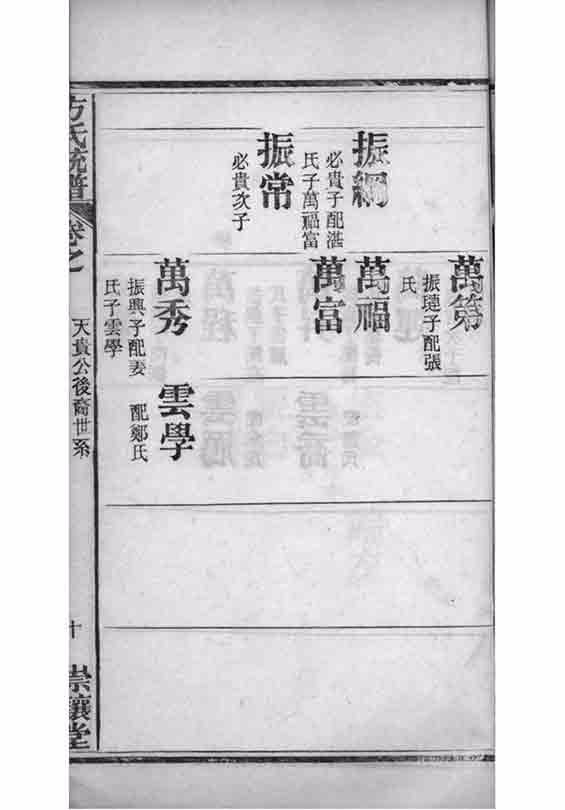 萬第
振璉子配張
氏
振綱
必貴子配湛
氏子萬福富
萬福
萬富
振常
必貴次子
萬秀
振興子配妻
氏子雲學
雲學
配鄭氏
方氏統譜
卷之
天貴公後裔世系
十
崇讓堂